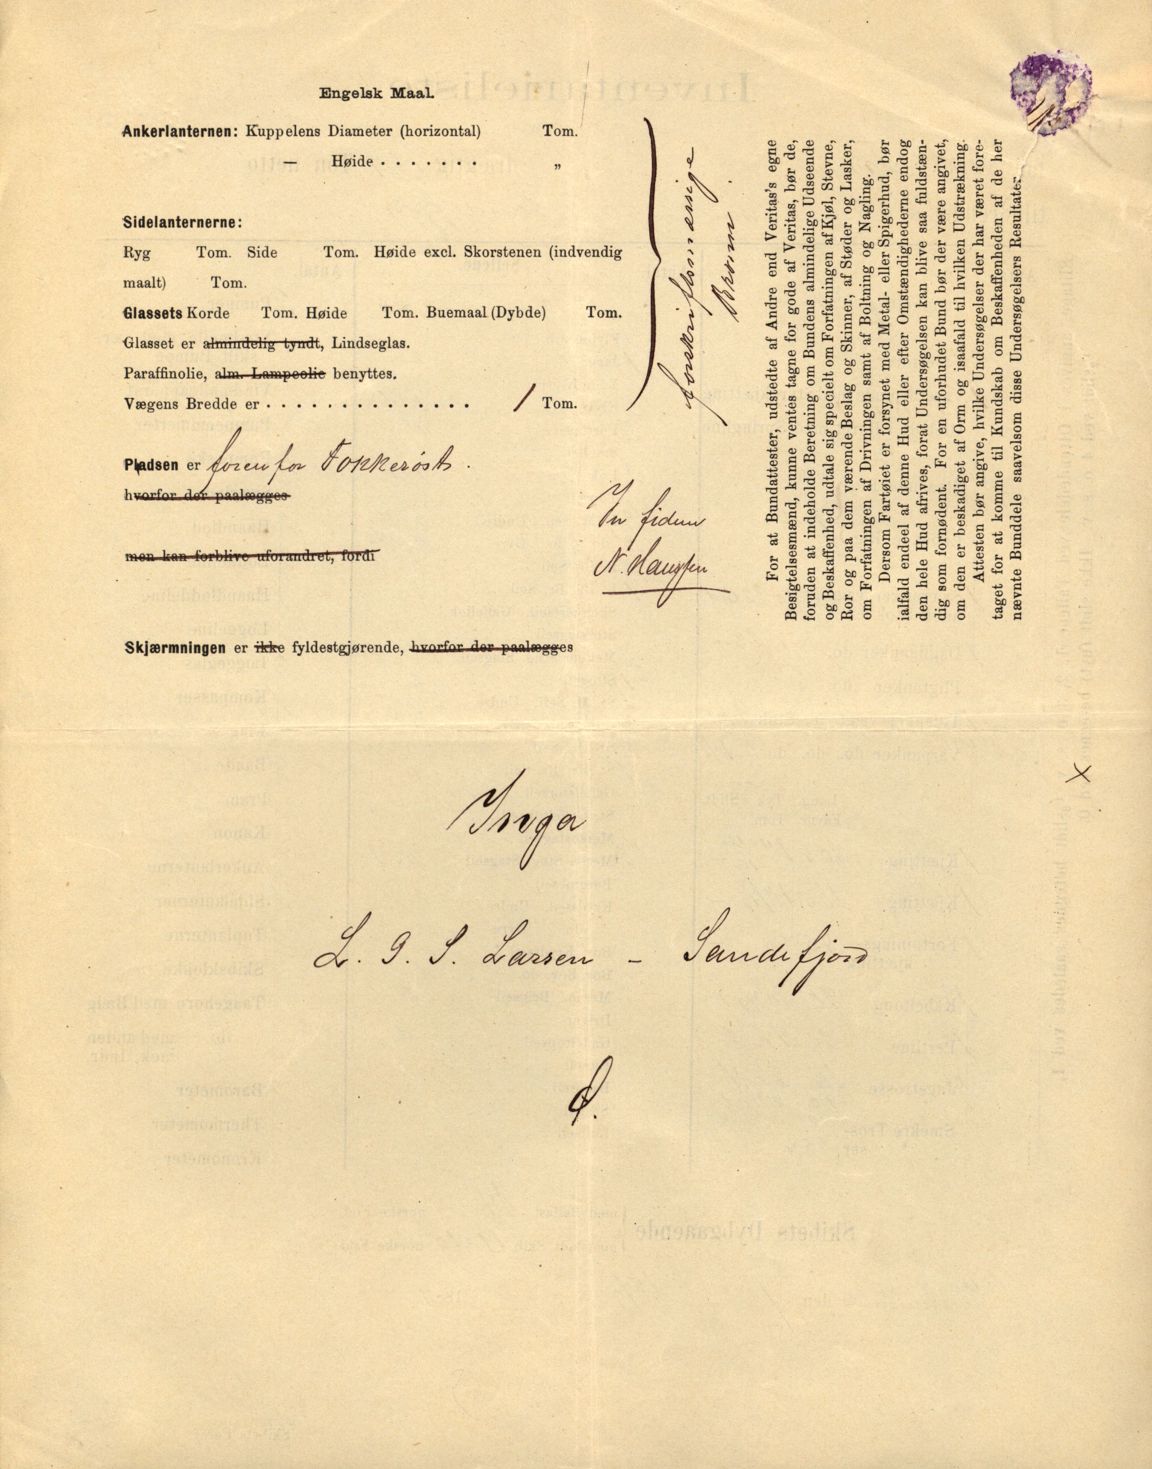 Engelsk Maal.
Ankerlanternen: Kuppelens Diameter (horizontal) Tom.
— Høide . . . . . . . „
Sidelanternerne:
Ryg Tom. Side Tom. Høide excl. Skorstenen (indvendig
maalt) Tom.
Glassets Korde Tom. Høide Tom. Buemaal (Dybde) Tom.
Glasset er almindelig tyndt, Lindseglas.
Paraffinolie, alm. Lampeolie benyttes.
Vægens Bredde er . . . . . . . . . . . . . . . 1 Tom.
forskriftsmæssige
Pladsen er foren for Fokkerøst.
hvorfor der paalægges
men kan forblive uforandret, fordi
In fidem
N. Haussen
Skjærmningen er ikke fyldestgjørende, hvorfor der paalægges
For at Bundattester, udstedte af Andre end Veritas's egne
Besigtelsesmænd, kunne ventes tagne for gode af Veritas, bør de,
foruden at indeholde Beretning om Bundens almindelige Udseende
og Beskaffenhed, udtale sig specielt om Forfatningen af Kjøl, Stevne,
Ror og paa dem værende Beslag og Skinner, af Støder og Lasker,
om Forfatningen af Drivningen samt af Boltning og Nagling.
Dersom Fartøiet er forsynet med Metal- eller Spigerhud, bør
ialfald endeel af denne Hud eller efter Omstændighederne endog
den hele Hud afrives, forat Undersøgelsen kan blive saa fuldstæn-
dig som fornødent. For en uforhudet Bund bør der være angivet,
om den er beskadiget af Orm og isaafald til hvilken Udstrækning.
Attesten bør angive, hvilke Undersøgelser der har været fore-
taget for at komme til Kundskab om Beskaffenheden af de her
nævnte Bunddele saavelsom disse Undersøgelsers Resultater.
x
Inga
L. G. S. Larsen – Sandefjord
Ø.